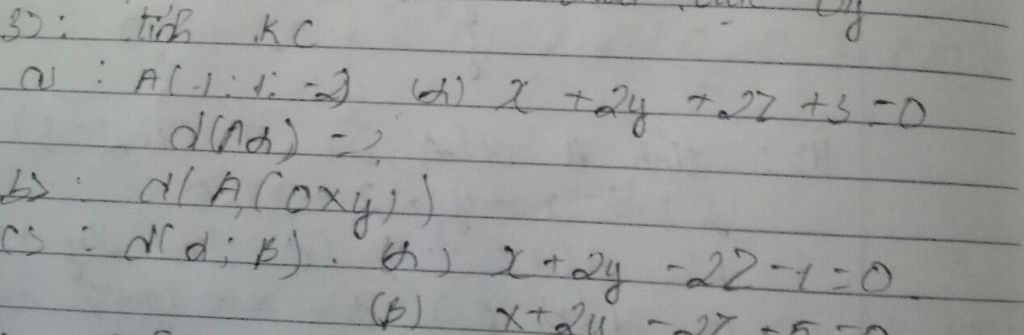 3): tích KC
a: A(-1; 1; -2) (α) x + 2y + 2z + 3 = 0
d(A α) = ?
b): d(A, (0xy))
c): d(α; β). (α) x + 2y - 2z - 1 = 0
(β) x + 2y - 2z + 5 = 0